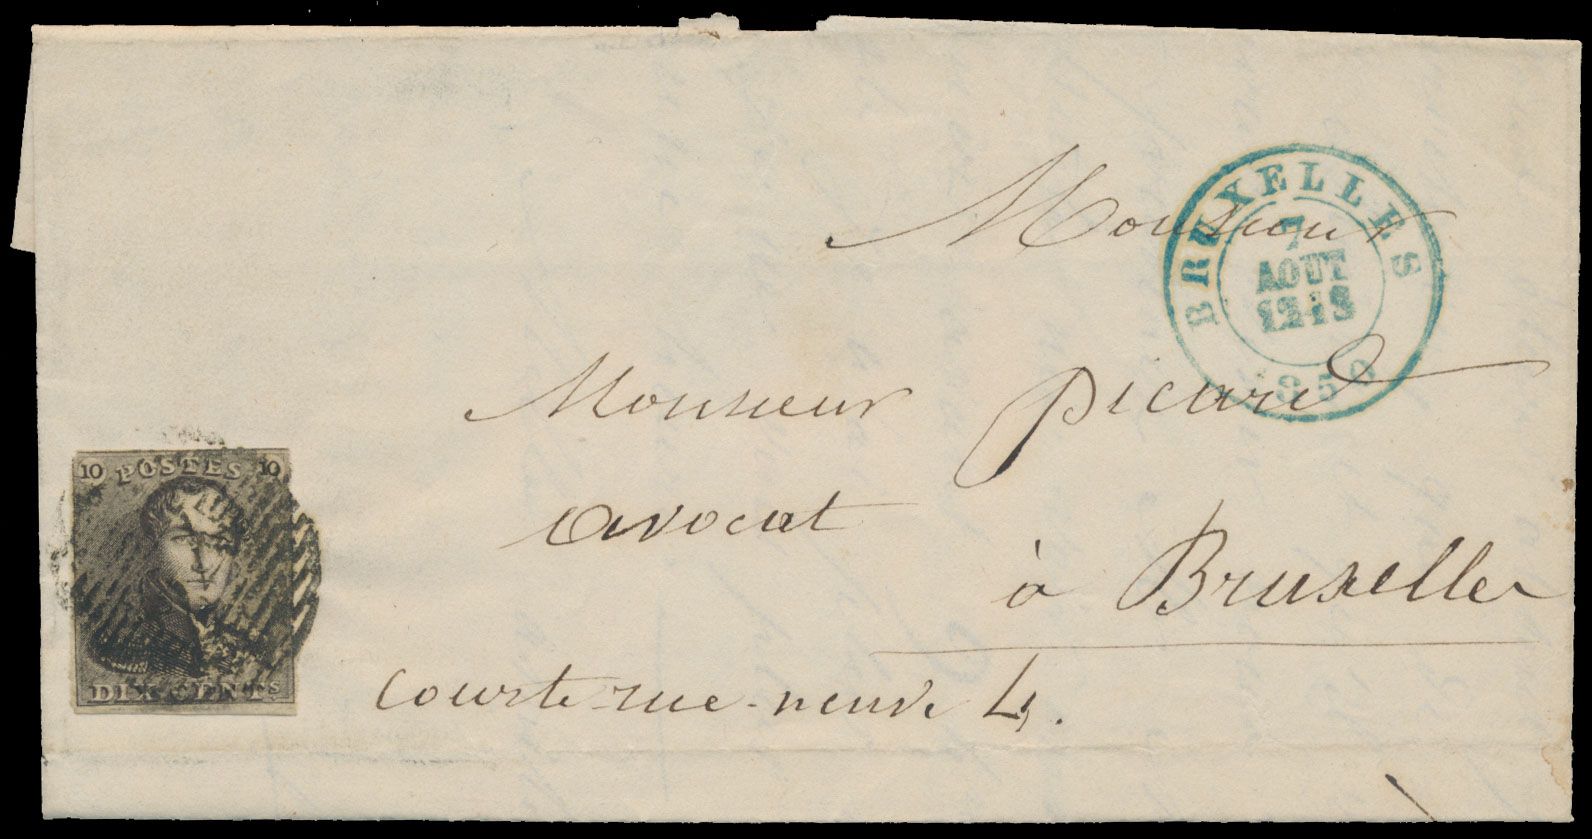 Monsieur
BRUXELLES
7
AOUT
12-1S
1850
Monsieur Picard
avocat
à Bruxelles
Courte-rue-neuve 4.
10 POSTES 10
DIX CENTS